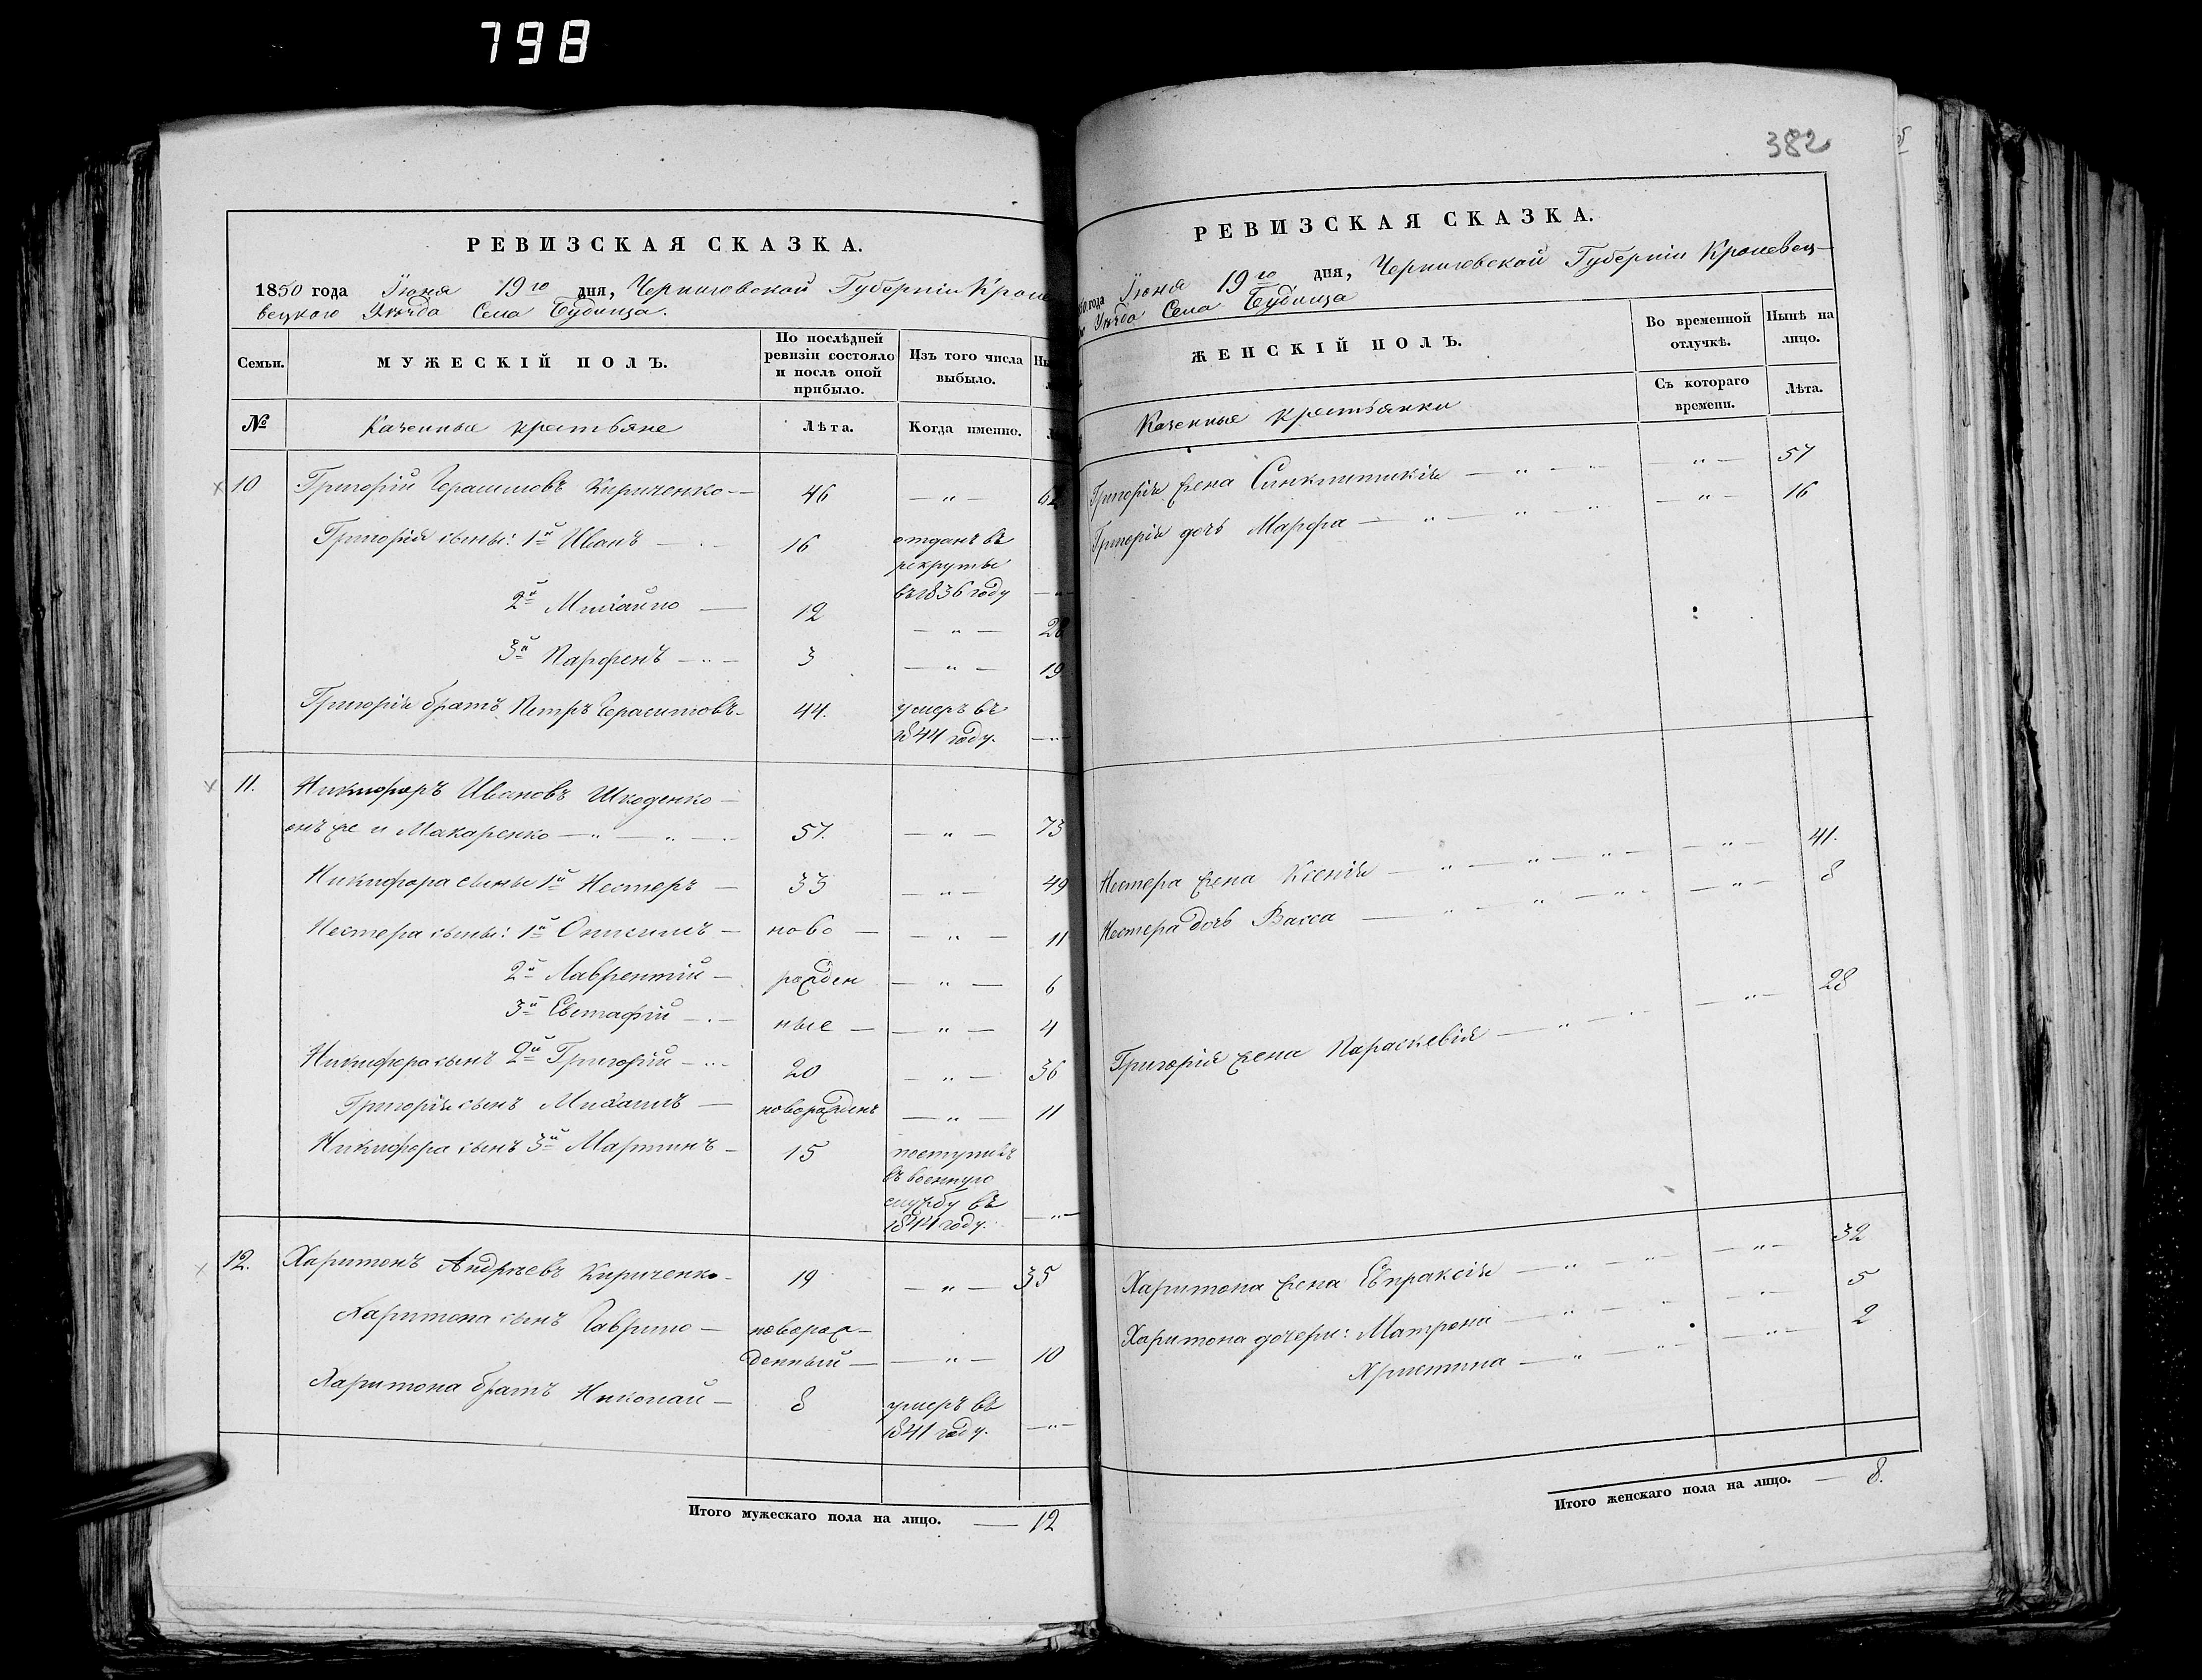 798
РЕВИЗСКАЯ СКАЗКА.
1850 года Іюня 19го дня, Черниговской Губерніи Кроле
вецкого Уѣзда Села Будища.
Семьи. МУЖЕСКІЙ ПОЛЪ. По послѣдней ревизіи состояло и послѣ оной прибыло. Изъ того числа выбыло.
№ Казенные крестьяне Лѣта. Когда именно.
10 Григорій Герасимовъ Кириченко — 46 — " — 62
Григорія сыны: 1й Иванъ — 16 отданъ въ
рекруты
въ 1836 году — " —
2й Михайло — 12 — " — 28
3й Парфенъ — " — 3 — " — 19
Григорія братъ Петръ Герасимовъ — 44. умеръ въ
1844 году. — " —
11. Никифоръ Ивановъ Шкоденко —
онъ же и Макаренко — " — " — 57. — " — 73
Никифора сыны 1й Нестеръ — 33 — " — 49
Нестера сыны: 1й Онисимъ — ново — — " — 11
2й Лаврентій — рожден — " — 6
3й Евстафій — ные — — " — 4
Никифора сынъ 2й Григорій — " — 20 — " — 36
Григорія сынъ Михаилъ — новорожденъ — " — 11
Никифора сынъ 3й Мартинъ — 15 поступилъ
въ военную
службу въ
1844 году. — " —
12. Харитонъ Андреевъ Кириченко — 19 — " — 35
Харитона сынъ Гаврило — новорож-
денный — — " — 10
Харитона братъ Николай — 8 умеръ въ
1841 году. — " —
Итого мужескаго пола на лицо. — 12
382
РЕВИЗСКАЯ СКАЗКА.
года Іюня 19го дня, Черниговской Губерніи Кролевец—
Уѣзда Села Будища
ЖЕНСКІЙ ПОЛЪ. Во временной отлучкѣ. Нынѣ на лицо.
Съ котораго времени. Лѣта.
Казенные крестьянки
Григорія жена Синклитикія — " — " — " — 57
Григорія дочь Марфа — " — " — " — " — 16
Нестера жена Ксенія — " — " — " — " — 41.
Нестера дочь Васса — " — " — " — " — 8
Григорія жена Параскевія — " — " — " — 28
Харитона жена Евпраксія — " — " — " — 32
Харитона дочери: Матрона — " — " — " — 5
Христина — " — " — " — 2
Итого женскаго пола на лицо. — 8.